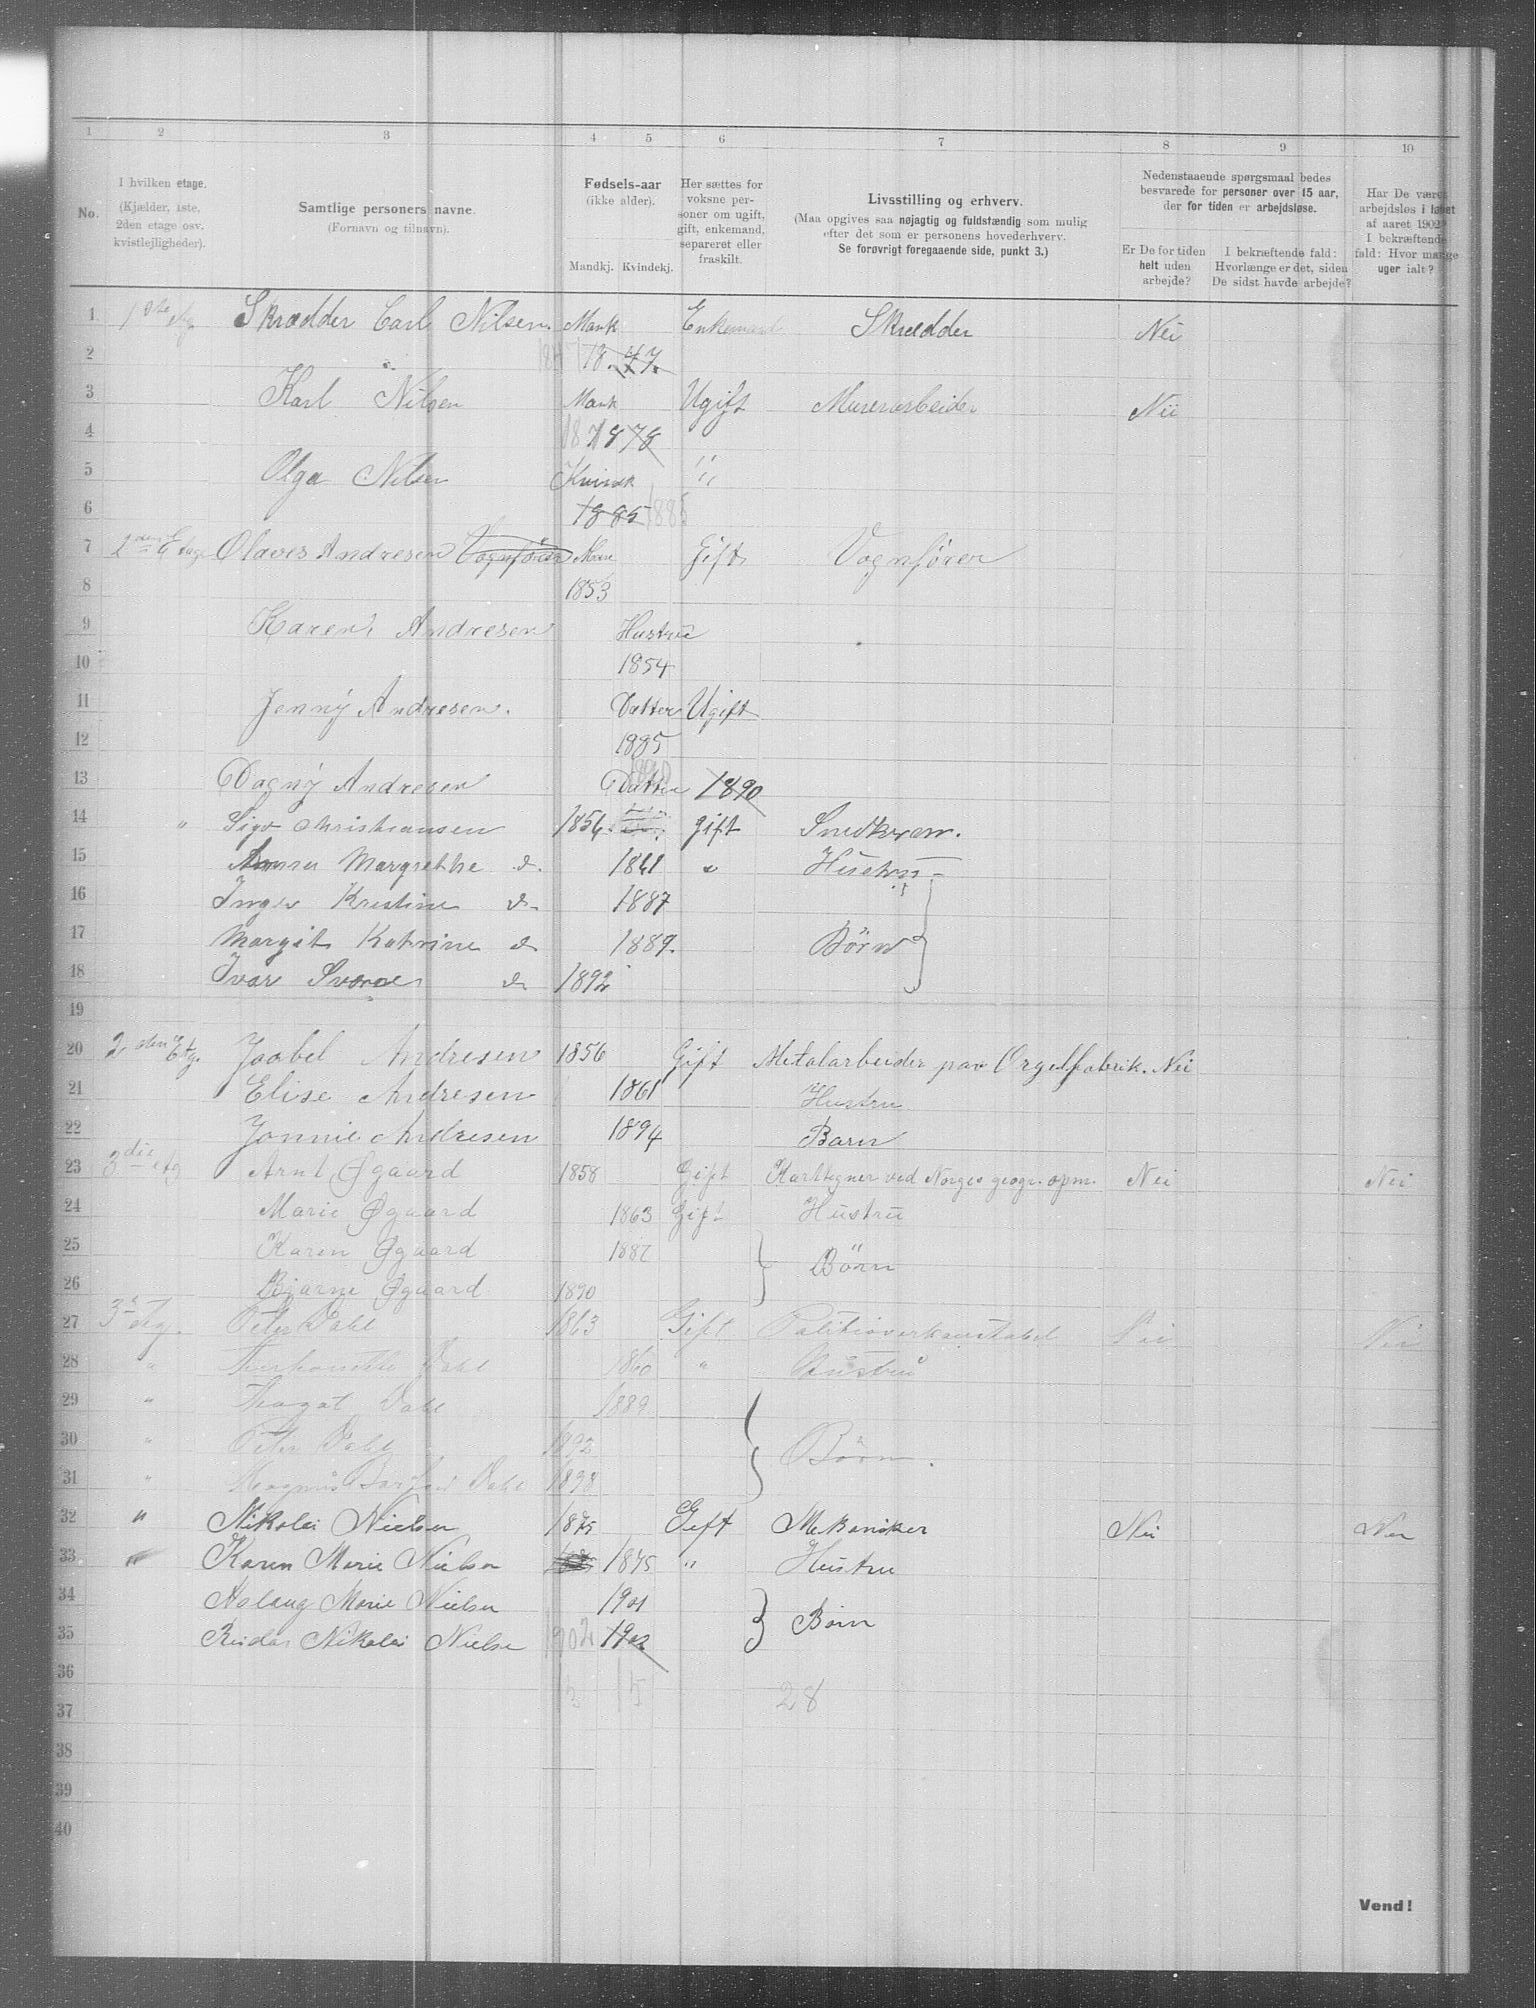 1 2 3 4 5 6 7 8 9 10
No.
I hvilken etage.
(Kjælder, 1ste,
2den etage osv.
kvistlejligheder).
Samtlige personers navne.
(Fornavn og tilnavn).
Fødsels-aar
(ikke alder).
Mandkj. Kvindekj.
Her sættes for
voksne per-
soner om ugift,
gift, enkemand,
separeret eller
fraskilt.
Livsstilling og erhverv.
(Maa opgives saa nøjagtig og fuldstændig som mulig
efter det som er personens hovederhverv.
Se forøvrigt foregaaende side, punkt 3.)
Nedenstaaende spørgsmaal bedes
besvarede for personer over 15 aar,
der for tiden er arbejdsløse.
Er De for tiden
helt uden
arbejde?
I bekræftende fald:
Hvorlænge er det, siden
De sidst havde arbejde?
Har De været
arbejdsløs i løbet
af aaret 1902?
I bekræftende
fald: Hvor mange
uger ialt?
1 1ste etg Skrædder Carl Nilsen. Mank Enkemand Skrædder Nei
2 18.47.
3 Karl Nilsen Mank Ugift Murerarbeider Nei
4 1878
5 Olga Nilsen Kvink "
6 1885 1885
7 2den Etage Olaves Andresen Vognfører Man Gift Vognfører
8 1853
9 Karen Andresen Hustru
10 1854
11 Jenny Andresen. Datter Ugift
12 1885
13 Dagny Andresen 1890 Datter 1890
14 " Sigv Christiansen 1856. gift Snedkersv.
15 Anna Margrethe d. 1861 " Hustru
16 Inga Kristine d. 1887
17 Margit Katrine d. 1889. Børn
18 Ivar Sverre d. 1892
19
20 2den Etg. Jaabel Andresen 1856 Gift Metalarbeider paa Orgelfabrik. Nei
21 Elise Andresen 1861 Hustru
22 Jonnie Andresen 1894 Barn
23 3die etg Arnt Øgaard 1858 Gift Karttegner ved Norges geogr. opm. Nei Nei
24 Marie Øgaard 1863 Gift Hustru
25 Karen Øgaard 1887 Børn
26 Bjarne Øgaard 1890
27 3 etg. Peter Dahl 1863 Gift Politioverkonstabel Nei Nei
28 " Dahl 1860 " Hustru
29 " Dahl 1889
30 " Peter Dahl 1892 Børn.
31 " Magnus Dahl 1898
32 " Nikolai Nielsen 1875 Gift Mekaniker Nei Nei
33 " Karen Marie Nielsen 1875 " Hustru
34 Aslaug Marie Nielsen 1901 Børn
35 Reidar Nikolai Nielse 1902 1902
36 15 28
37
38
39
40
Vend!